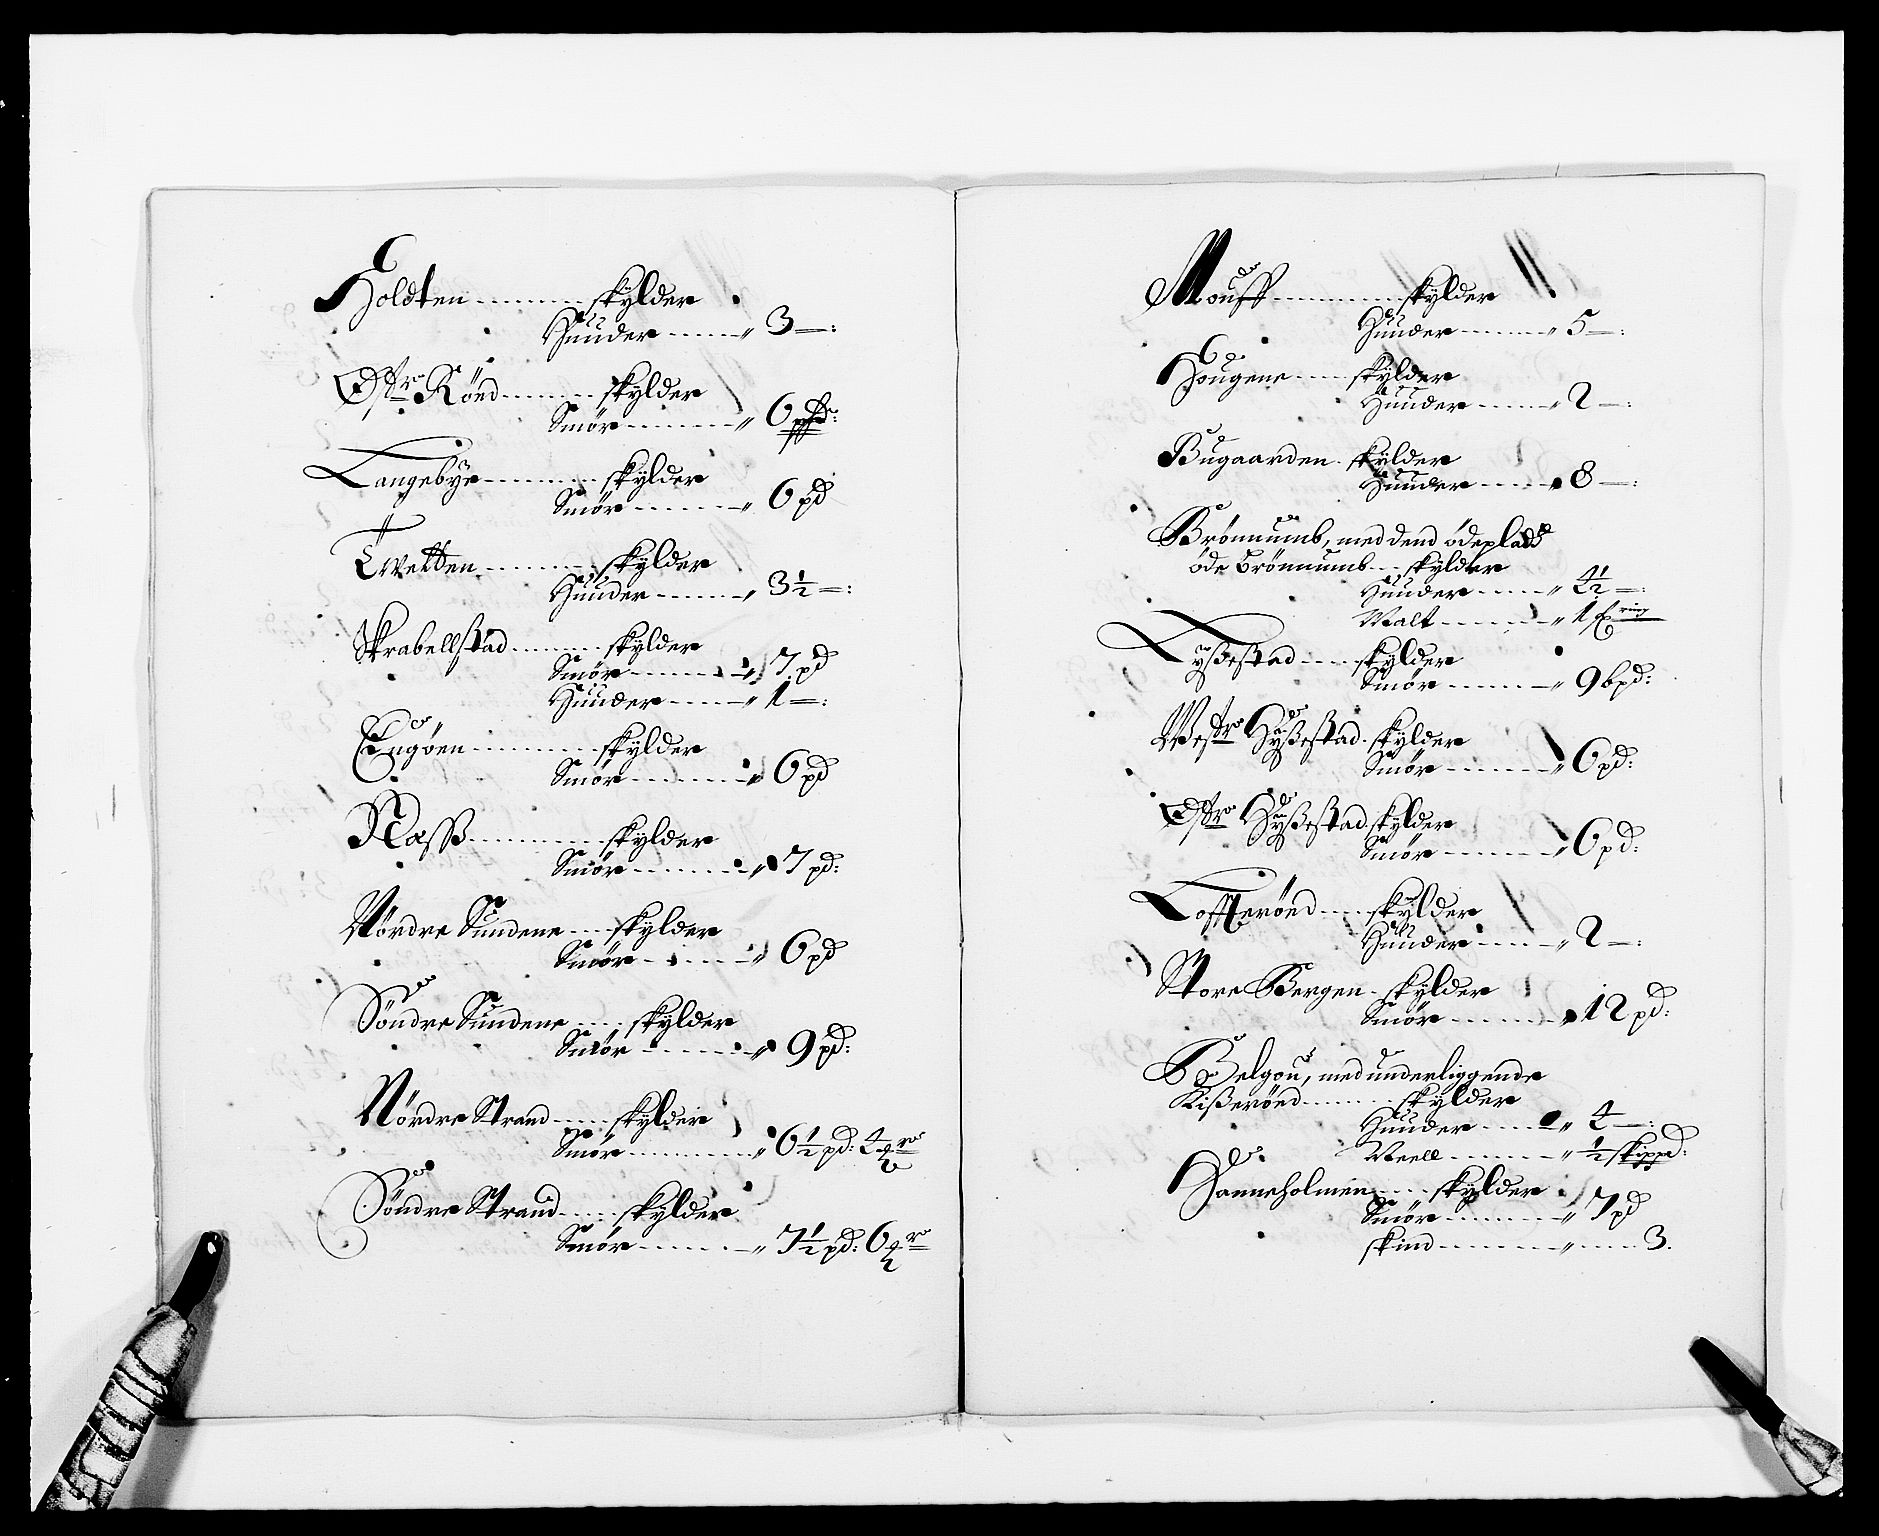 Holdten ......... skylder
Huuder ....... „ 3 —:
Østr Rönd ........ skylder
Smör ......... „ 6 pfd:
Langebÿe ......... skylder
Smör ........ „ 6 pd
Tvetten ......... skylder
Huuder ....... „ 3½ —:
Skrabellstad ........ skylder
Smör ......... „ 7 pd
Huuder ....... „ 1 —:
Engöen .......... skylder
Smör ......... „ 6 pd
Næss .......... skylder
Smör ......... „ 7 pd:
Nördre Sundene .... skylder
Smör ........ „ 6 pd
Söndre Sundene ..... skylder
Smör ........ „ 9 pd:
Nördre Strand ..... skylder
Smör ......... „ 6½ pd: 4
Söndre Strand ..... skylder
Smör ......... „ 7½ pd: 6
Mouff ........... skylder
Huuder ....... „ 5 —:
Hougene ..... skylder
Huuder ...... „ 2 —:
Bugaarden . skylder
Huuder ...... „ 8 —:
Brönnumb, med dend ödeplads
öde Brönnumb ... skylder
Huuder ...... „ 4½ —:
Malt ........ „ 1
Lyßestad ..... skylder
Smör ....... „ 9 bpd:
Westr Hyßestad . skylder
Smör ....... „ 6 pd:
Østr Hyßestad . skylder
Smör ....... „ 6 pd:
Lofftserönd ..... skylder
Huuder ...... „ 2 —:
Store Bergen . skylder
Smör ....... „ 12 pd:
Belgou, med underliggende
Kißerönd ....... skylder
Huuder ..... „ 4 —:
Meell ........ „ ½ skippd:
Hanneholmen .... skylder
Smör ....... „ 7 pd
skind ......... „ ..... 3.